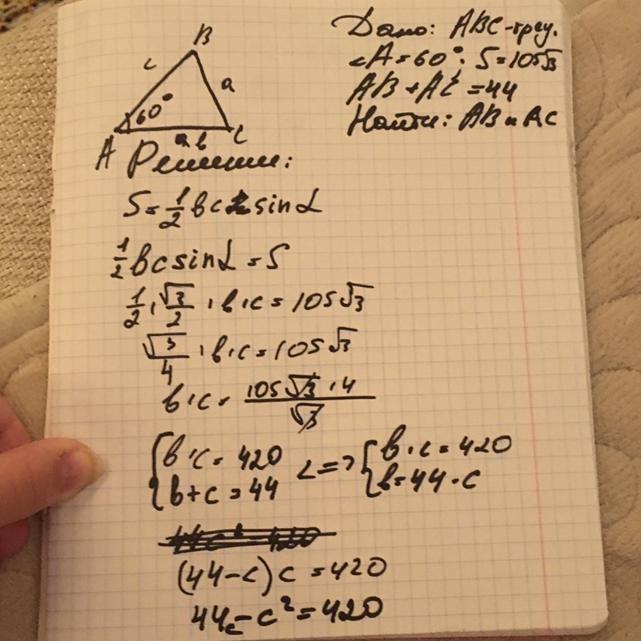 Дано: ABC-треу.
∠A=60°. S=105√3
AB+AC=44
Найти: AB и AC
B
c
a
60°
A
b
C
Решение:
S=1/2 bc sinα
1/2 bc sinα=S
1/2 · √3/2 · b·c=105√3
√3/4 · b·c=105√3
b·c= 105√3·4/√3
{b·c=420 <=> {b·c=420
{b+c=44 {b=44-c
(44-c)c=420
44c-c²=420